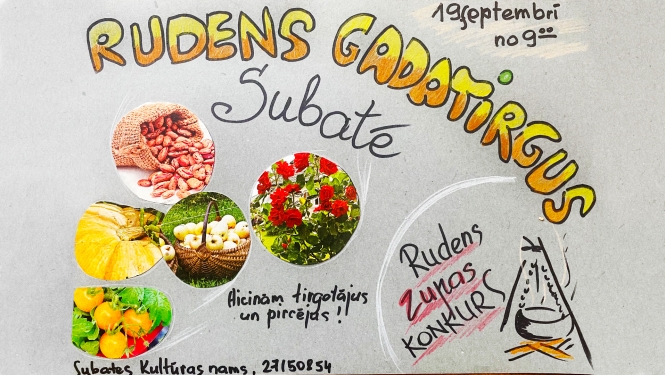 19.septembrī
no 9⁰⁰
RUDENS GADATIRGUS
Subatē
Aicinām tirgotājus
un pircējus!
Rudens
zupas
KONKURS
Subates Kultūras nams, 27150854